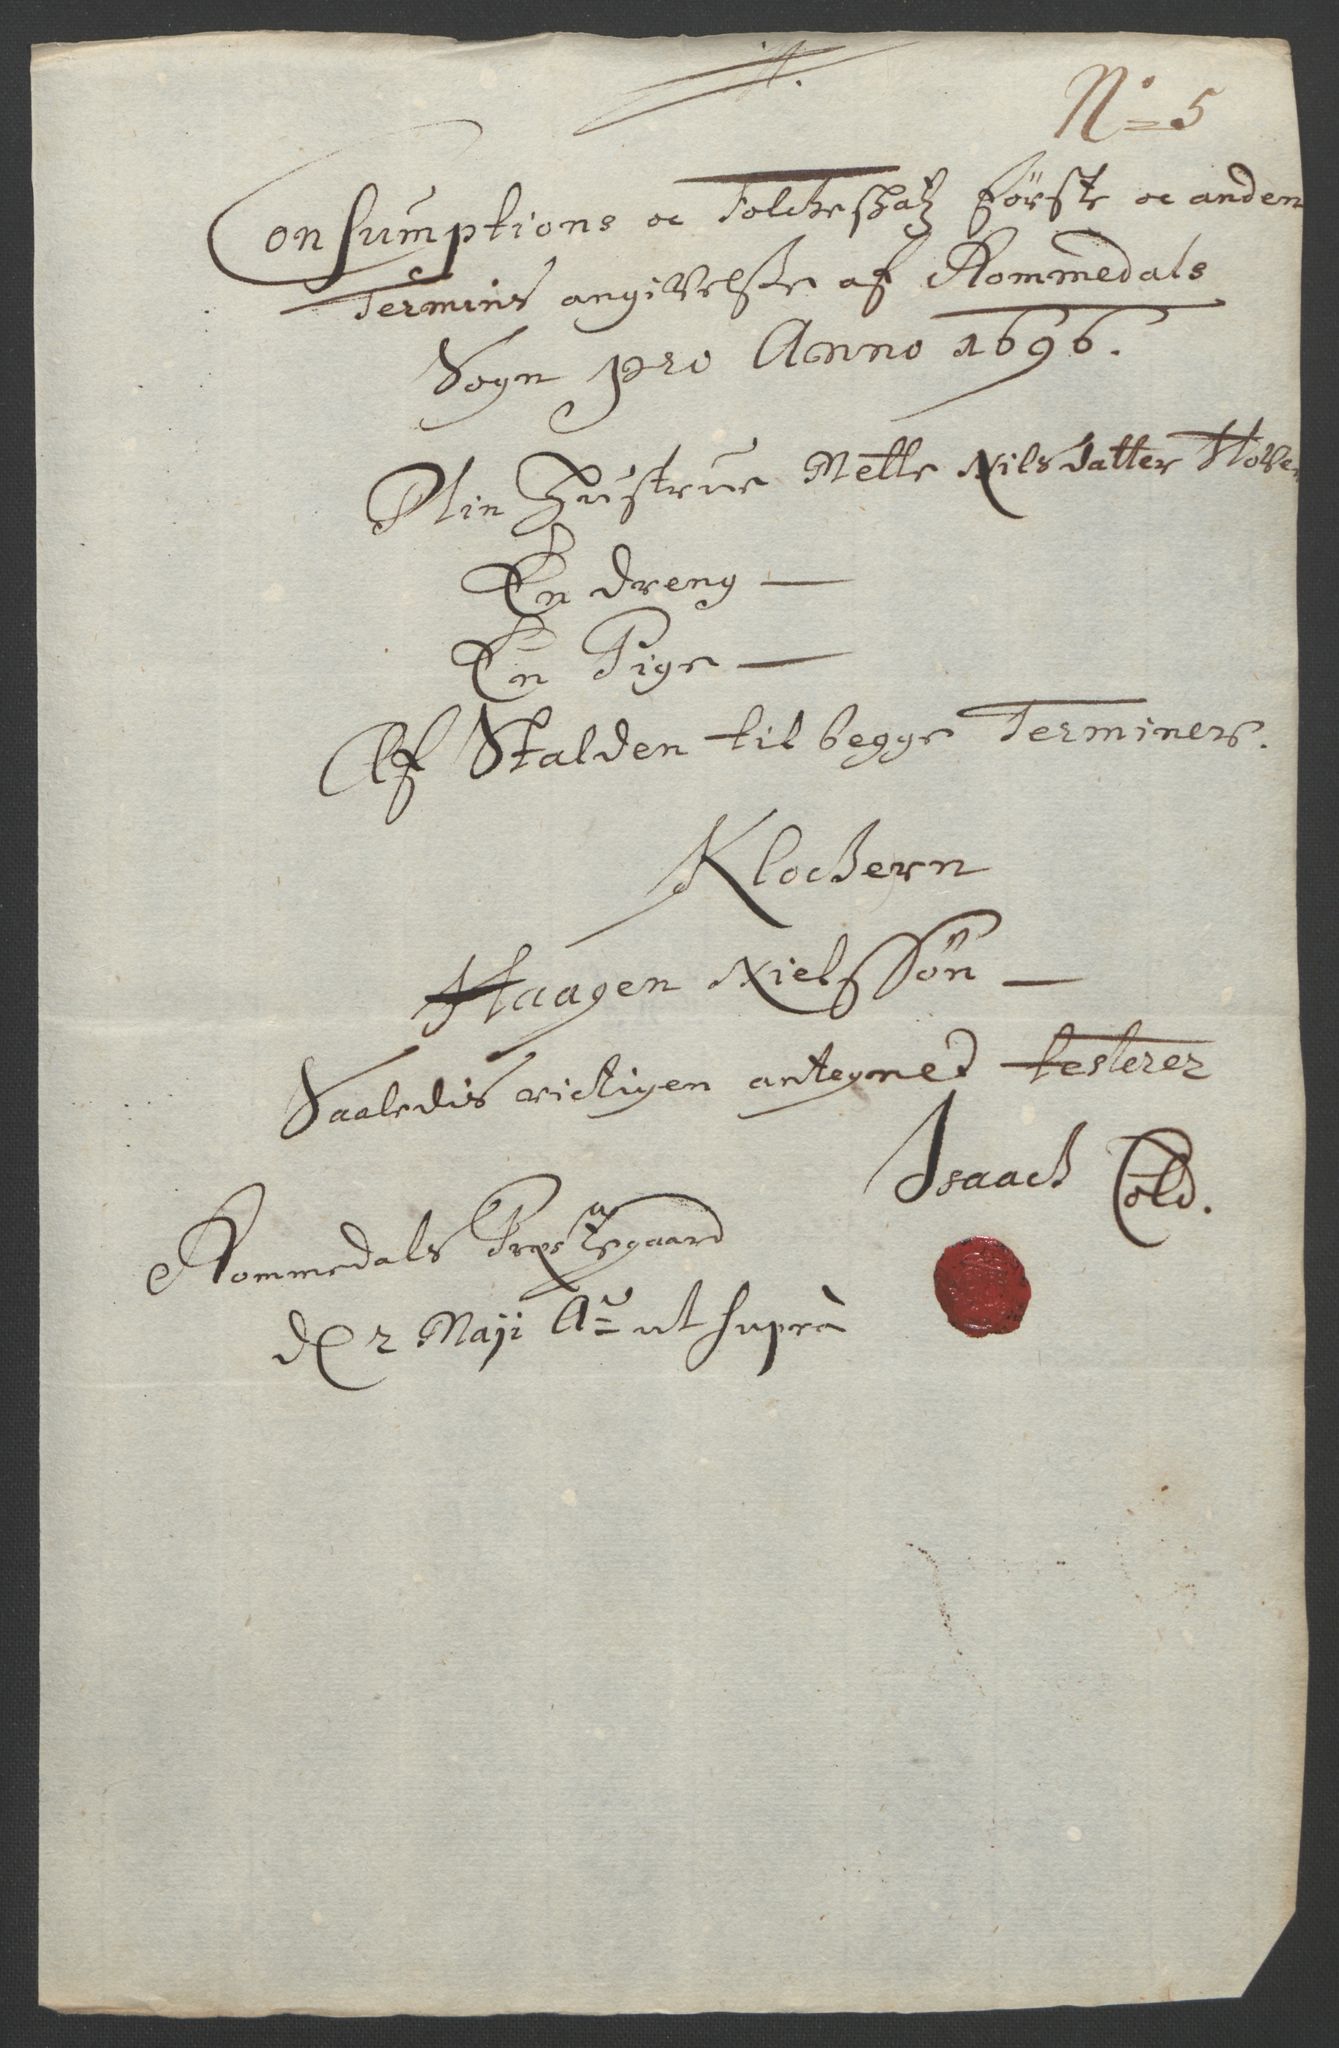 No 5
Consumptions oc Folckeskatz Første oc anden
Termins angifvelse af Rommedals
Sogn pro Anno 1696.
Min Hustrue Mette Nilsdatter
En dreng —
En Pige —
Af Stalden til begge Terminer.
Klockern
Haagen Nielssøn —
Saaledis richtigen antegned testerer
Isaach Cold.
Rommedals Præstegaard
d 2 Maji Ao ut suprà